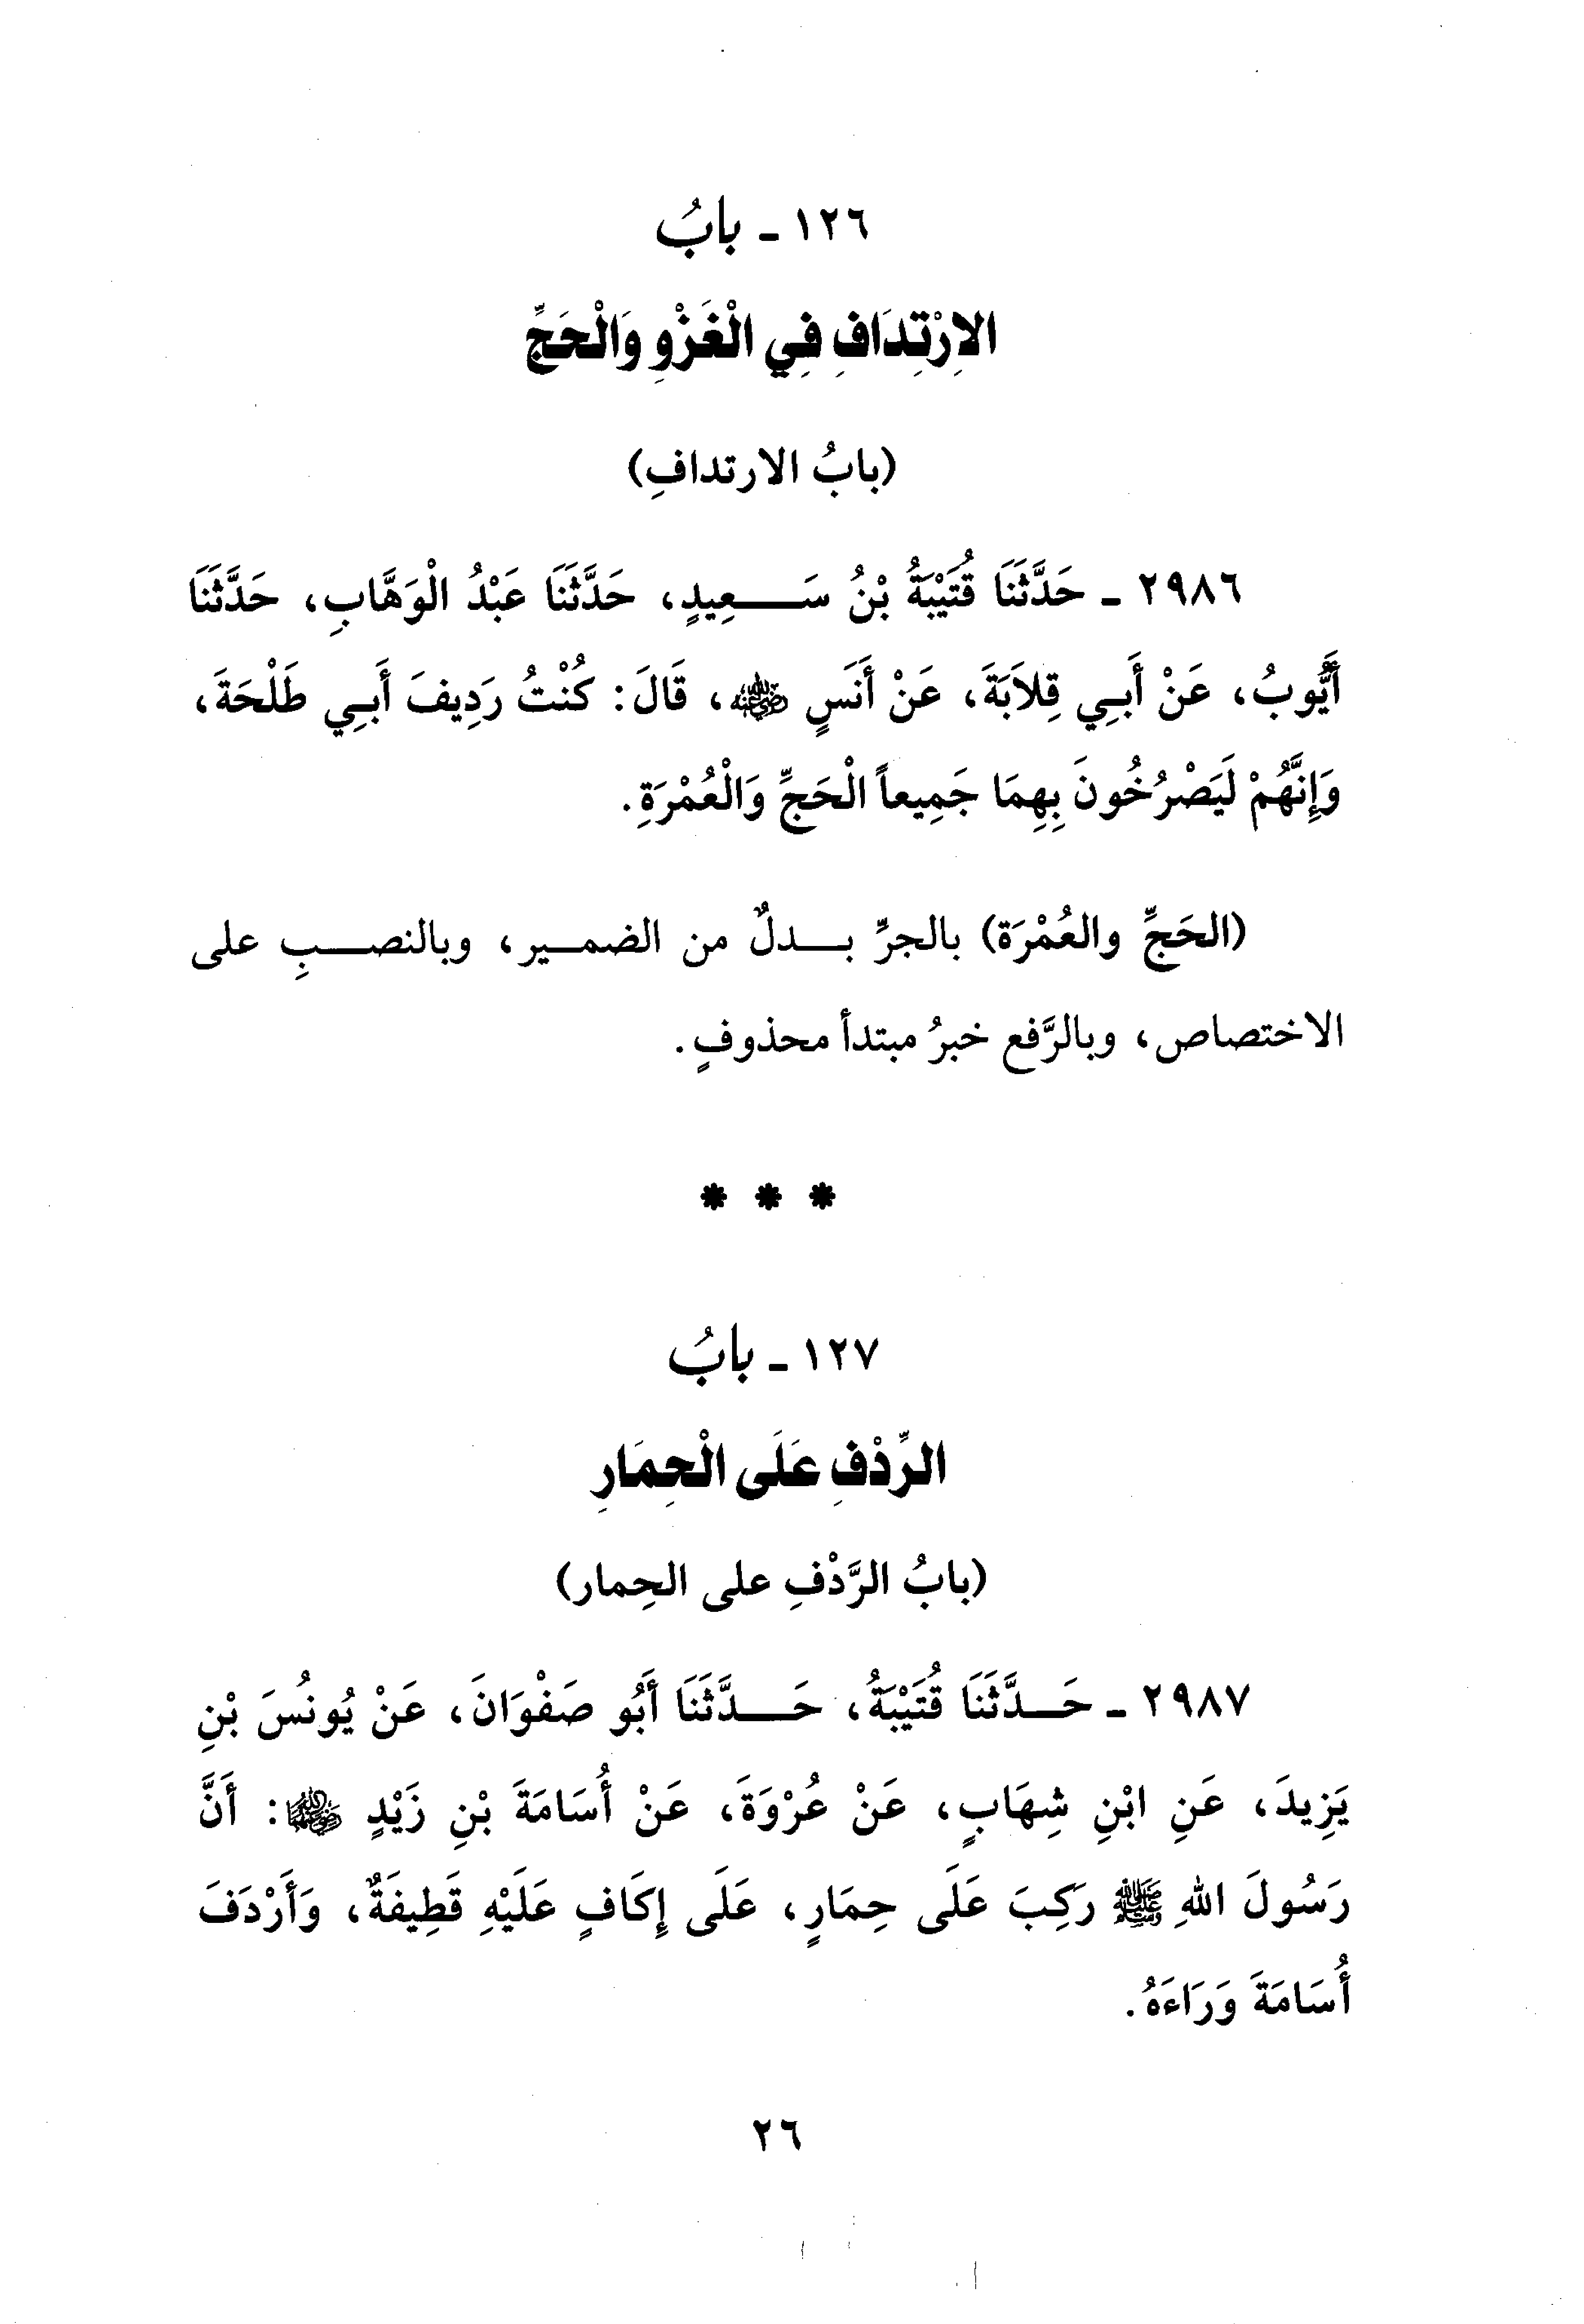 ١٢٦ - بابُ
الاِرْتِدَافِ فِي الْغَزْوِ وَالْحَجِّ
(بابُ الارتدافِ)
٢٩٨٦ - حَدَّثَنَا قُتَيْبَةُ بْنُ سَعِيدٍ، حَدَّثَنَا عَبْدُ الْوَهَّابِ، حَدَّثَنَا
أَيُّوبُ، عَنْ أَبِي قِلاَبَةَ، عَنْ أَنَسٍ رضي الله عنه، قَالَ: كُنْتُ رَدِيفَ أَبِي طَلْحَةَ،
وَإِنَّهُمْ لَيَصْرُخُونَ بِهِمَا جَمِيعاً الْحَجِّ وَالْعُمْرَةِ.
(الحَجِّ والعُمْرَة) بالجرِّ بدلٌ من الضمير، وبالنصبِ على
الاختصاص، وبالرَّفع خبرُ مبتدأ محذوفٍ.
* * *
١٢٧ - بابُ
الرِّدْفِ عَلَى الْحِمَارِ
(بابُ الرَّدْفِ على الحِمار)
٢٩٨٧ - حَدَّثَنَا قُتَيْبَةُ، حَدَّثَنَا أَبُو صَفْوَانَ، عَنْ يُونُسَ بْنِ
يَزِيدَ، عَنِ ابْنِ شِهَابٍ، عَنْ عُرْوَةَ، عَنْ أُسَامَةَ بْنِ زَيْدٍ رضي الله عنهما: أَنَّ
رَسُولَ اللهِ ﷺ رَكِبَ عَلَى حِمَارٍ، عَلَى إِكَافٍ عَلَيْهِ قَطِيفَةٌ، وَأَرْدَفَ
أُسَامَةَ وَرَاءَهُ.
٢٦